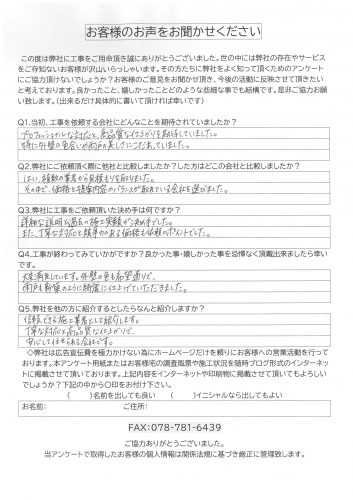 お客様のお声をお聞かせください
この度は弊社に工事をご用命頂き誠にありがとうございました。世の中には弊社の存在やサービス
をご存知ないお客様が沢山いらっしゃいます。その方たちに弊社をよく知って頂くためのアンケート
にご協力頂けないでしょうか?お客様のご意見をお聞かせ頂き、今後の活動に反映させて頂きたい
と考えております。良かったこと、嬉しかったことどのような些細な事でも結構です。是非ご協力お願
い致します。(出来るだけ具体的に書いて頂ければ幸いです)
Q1.当初、工事を依頼する会社にどんなことを期待されていましたか?
プロフェッショナルな対応と、高品質な仕上がりを期待していました。
特に外壁の色合いや雨戸の美しさにこだわっていました。
Q2.弊社にご依頼頂く際に他社と比較しましたか?した方はどこの会社と比較しましたか?
はい、複数の業者から見積もりを取りました。
その中で、価格と提案内容のバランスが取れている会社を選びました。
Q3.弊社に工事をご依頼頂いた決め手は何ですか?
詳細な説明と過去の施工実績が決め手でした。
また、丁寧な対応と競争力のある価格も依頼のポイントでした。
Q4.工事が終わってみていかがですか?良かった事・嬉しかった事を忌憚なく頂戴出来ましたら幸い
です。
大変満足しています。外壁の色も希望通りで、
雨戸も新築のように綺麗に仕上げていただきました。
Q5.弊社を他の方に紹介するとしたらなんと紹介しますか?
信頼できる施工業者として紹介します。
丁寧な対応と高品質な仕上がりで、
安心して任せられる会社です。
◇弊社は広告宣伝費を極力かけない為にホームページだけを頼りにお客様への営業活動を行って
おります。本アンケート用紙またはお客様宅の調査風景や施工状況を随時ブログ形式のインターネッ
トに掲載させて頂いております。上記内容をインターネットや印刷物に掲載させて頂いてもよろしい
でしょうか?下記の中から○印をお付け下さい。
( )名前を出しても良い ( )イニシャルなら出してもよい
お名前: ご住所:
FAX:078-781-6439
ご協力ありがとうございました。
当アンケートで取得したお客様の個人情報は関係法規に基づき厳正に管理致します。